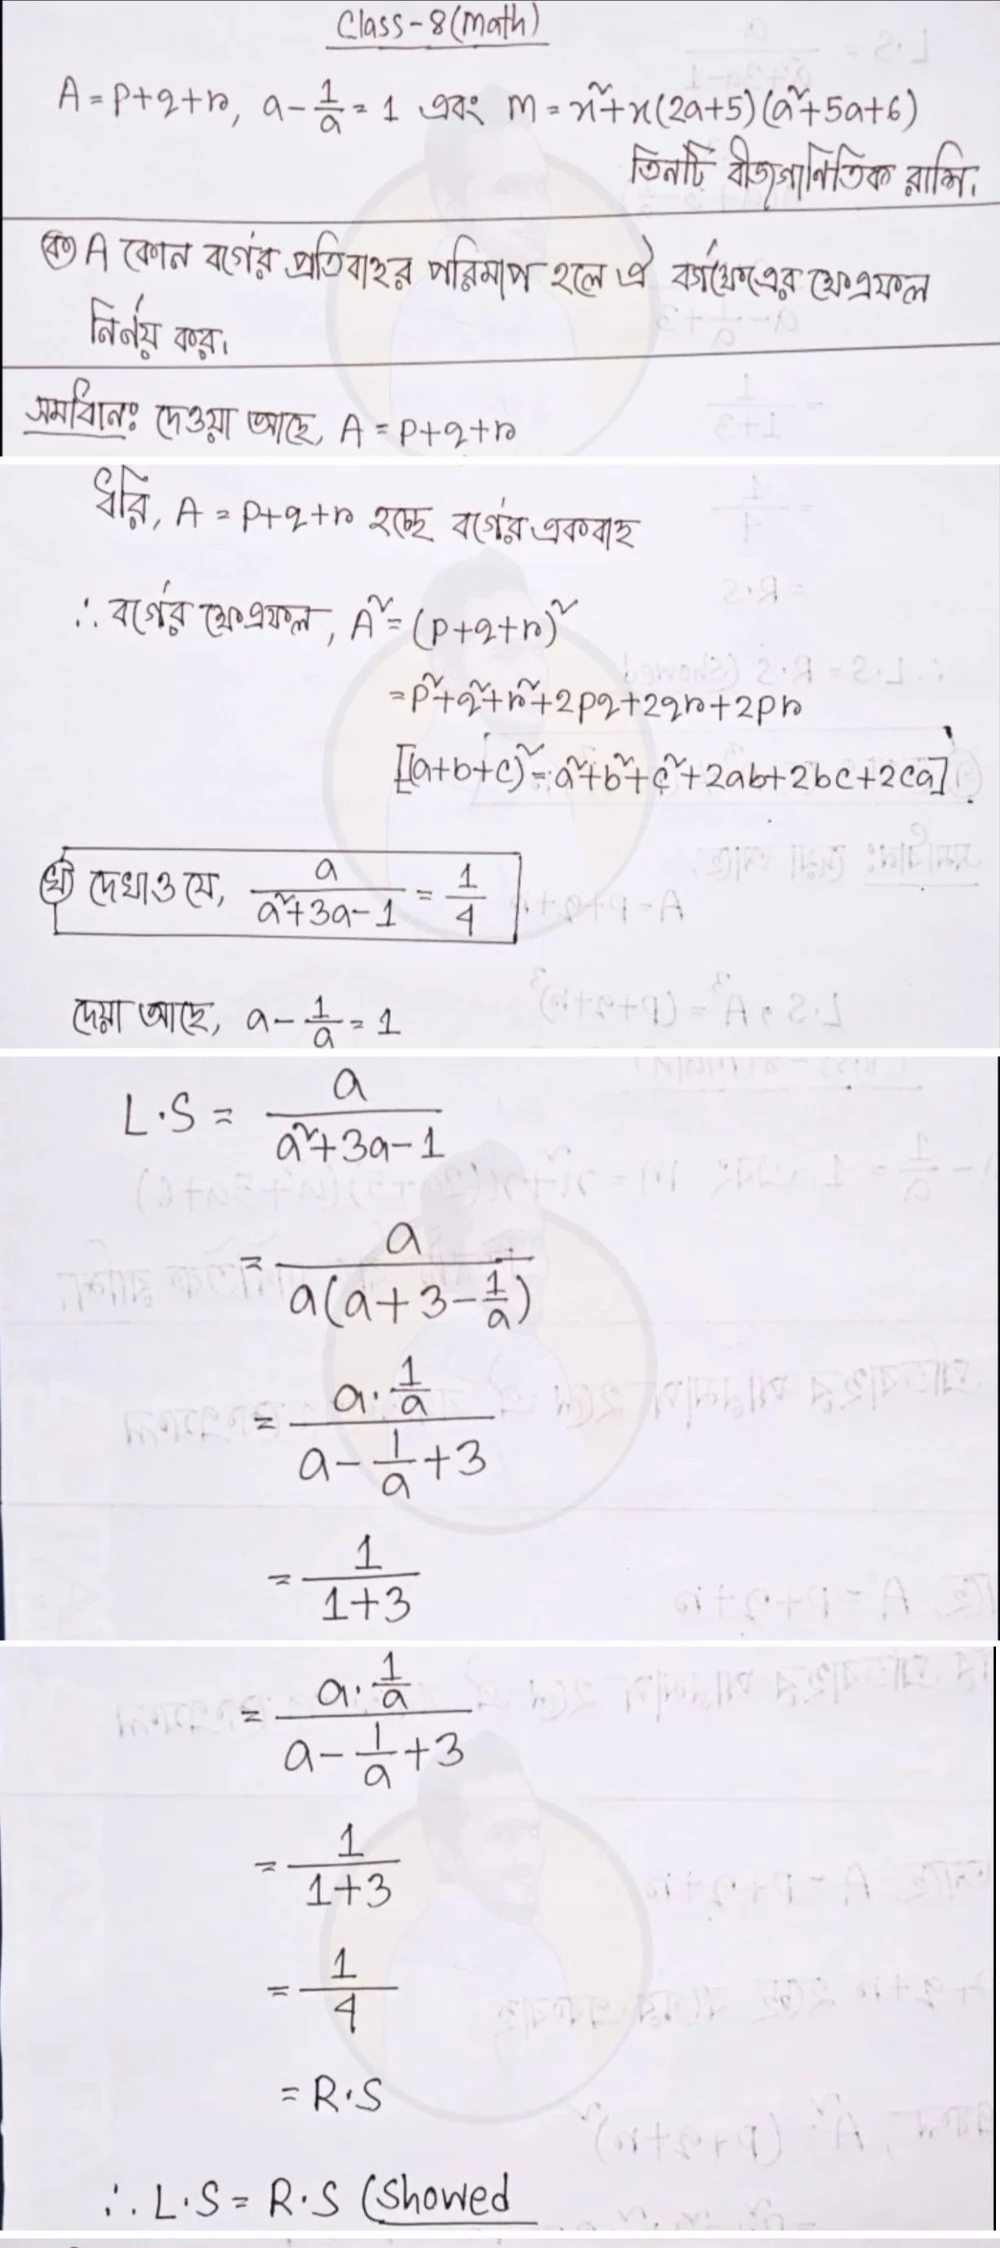 Class-8(math)
A = p+q+r, a - 1/a = 1 এবং m = x²+x(2a+5)(a²+5a+6)
তিনটি বীজগাণিতিক রাশি।
(ক) A কোন বর্গের প্রতিবাহুর পরিমাপ হলে ঐ বর্গক্ষেত্রের ক্ষেত্রফল
নির্ণয় কর।
সমাধান: দেওয়া আছে, A = p+q+r
ধরি, A = p+q+r হচ্ছে বর্গের একবাহু
∴ বর্গের ক্ষেত্রফল, A² = (p+q+r)²
= p²+q²+r²+2pq+2qr+2pr
[(a+b+c)² = a²+b²+c²+2ab+2bc+2ca]
(খ) দেখাও যে, a/(a²+3a-1) = 1/4
দেয়া আছে, a - 1/a = 1
L.S = a/(a²+3a-1)
= a/(a(a+3-1/a))
= (a·1/a)/(a-1/a+3)
= 1/(1+3)
= (a·1/a)/(a-1/a+3)
= 1/(1+3)
= 1/4
= R.S
∴ L.S = R.S (Showed